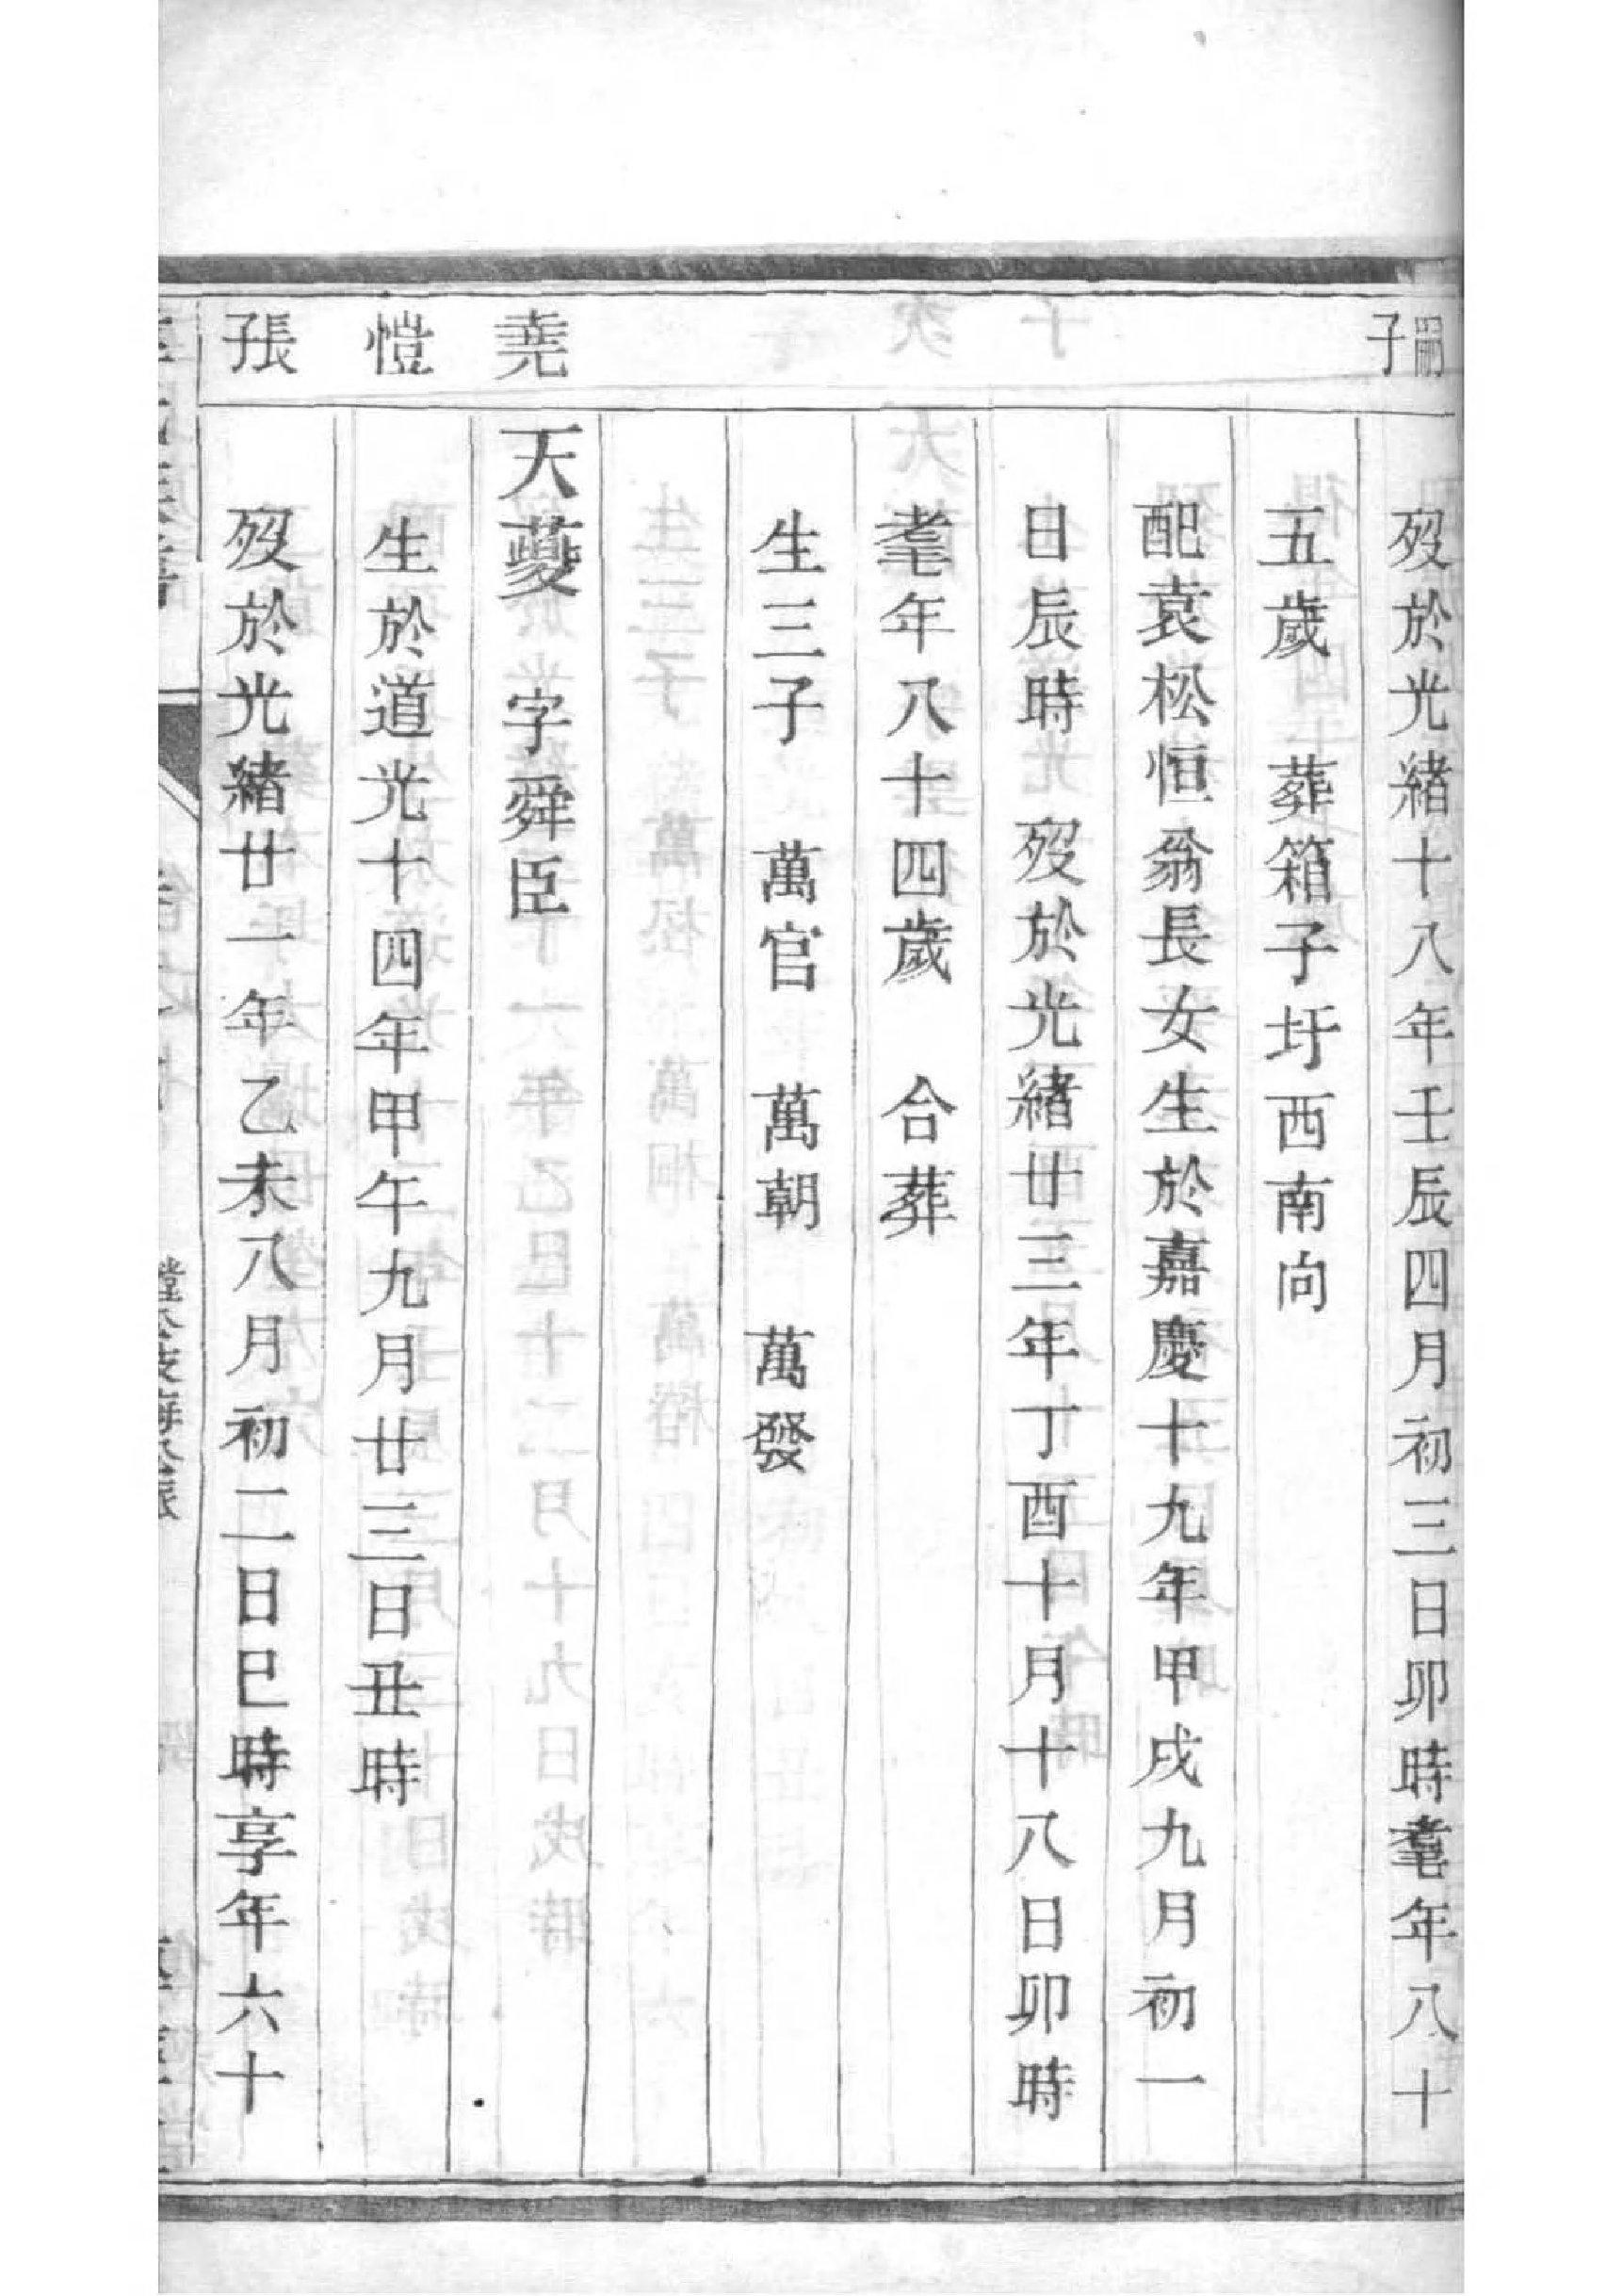 嗣子
歿於光緒十八年壬辰四月初三日卯時耄年八十
五歲　葬箱子圩西南向
配袁松恒翁長女生於嘉慶十九年甲戌九月初一
日辰時　歿於光緒廿三年丁酉十月十八日卯時
耄年八十四歲　合葬
生三子　萬官　萬朝　萬發
堯
天夔　字舜臣
愷
生於道光十四年甲午九月廿三日丑時
張
歿於光緒廿一年乙未八月初二日巳時享年六十